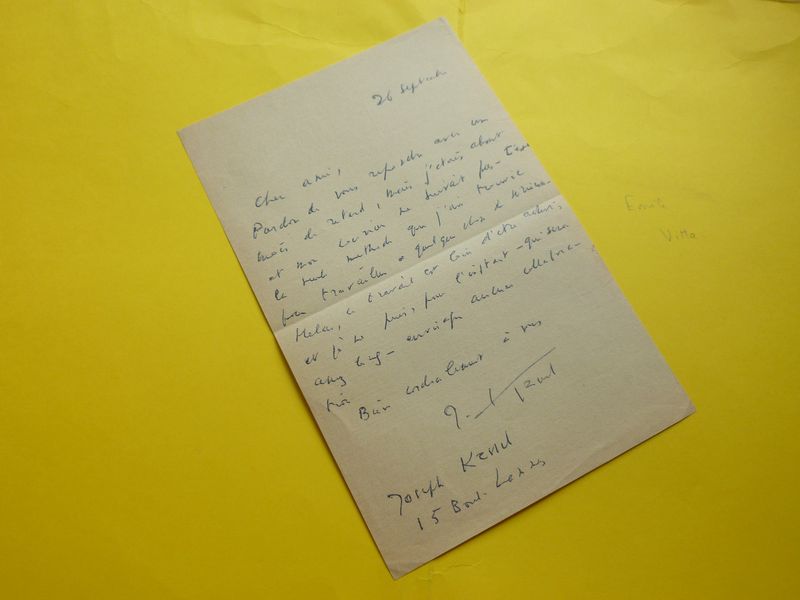 26 Septembre
Cher ami,
Pardon de vous répondre avec un
mois de retard, mais j'étais absent
et mon courrier ne suivait pas - C'est
la seule méthode que j'ai trouvée
pour travailler à quelque chose de sérieux.
Hélas, ce travail est loin d'être achevé,
et je ne puis, pour l'instant - qui sera
assez long - envisager aucune collabora-
tion
Bien cordialement à vous
J. Kessel
Joseph Kessel
15 Boul. Lannes
Emilio
Villa